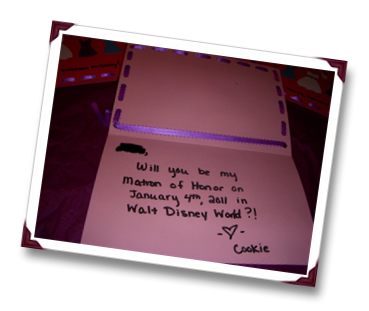 Will you be my
Matron of Honor on
January 4th, 2011 in
Walt Disney World?!
-♡-
Cookie